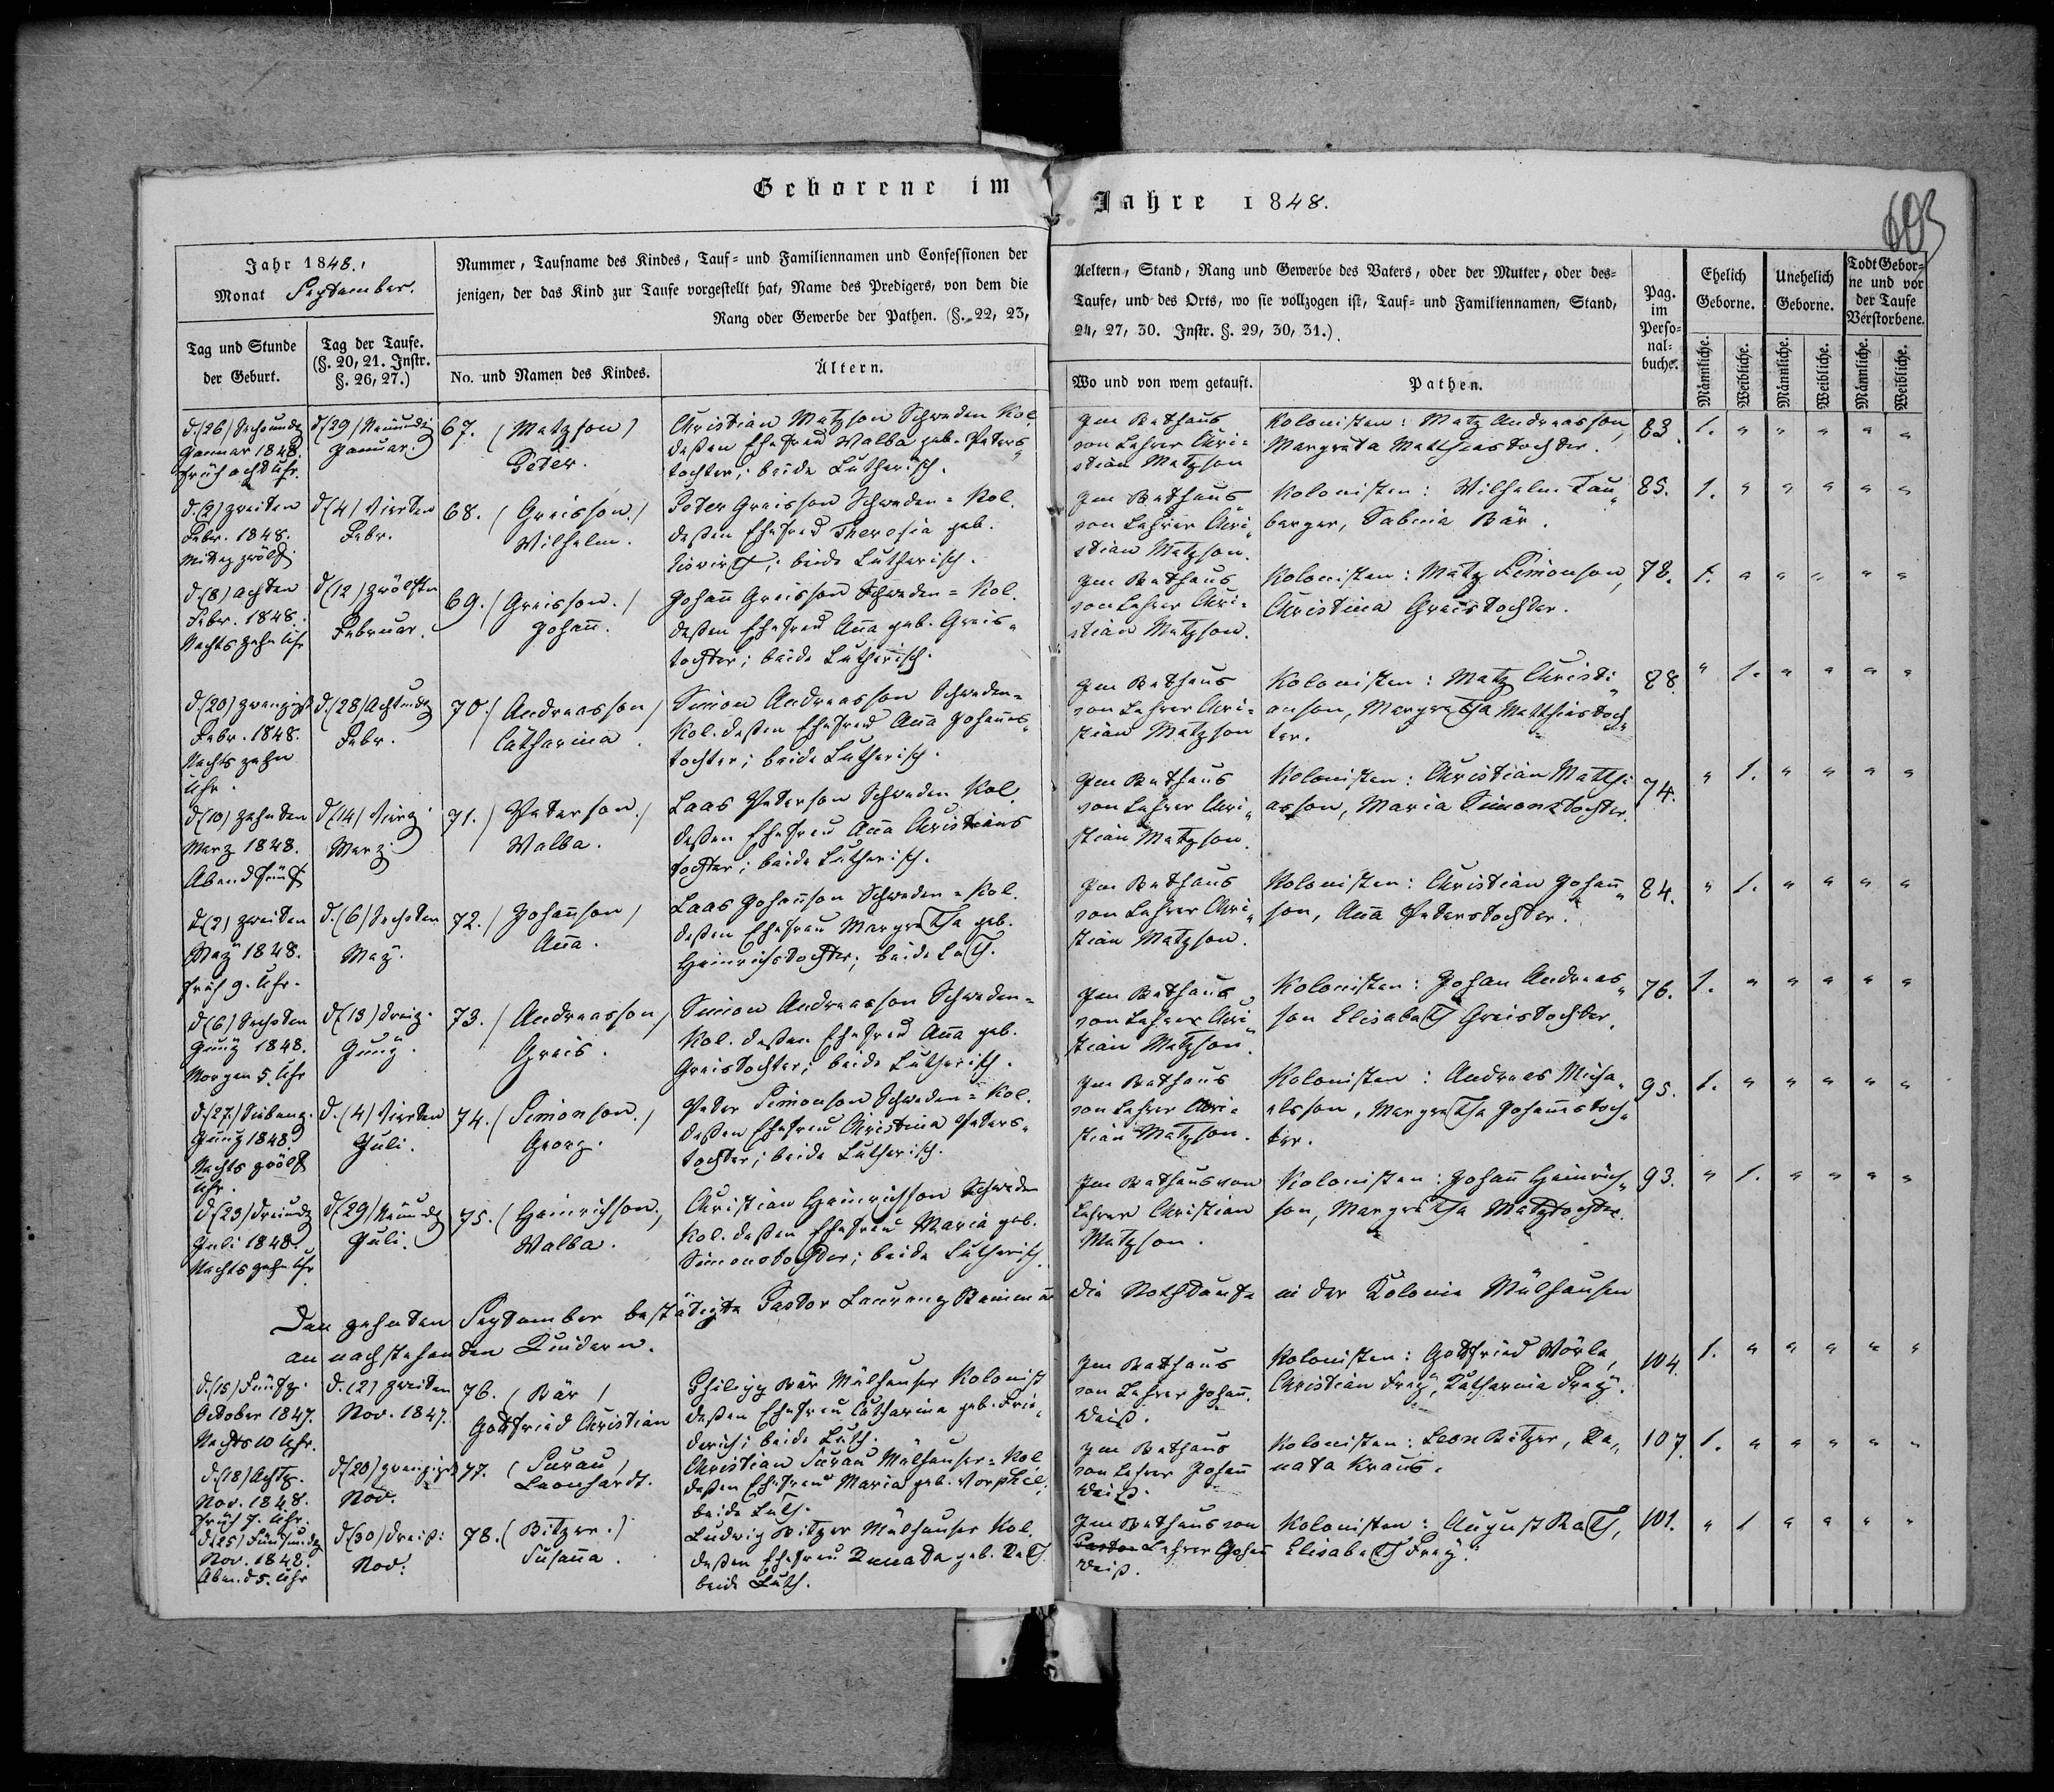 Geborene im Jahre 1848.
603
Jahr 1848.,
Monat September.
Tag und Stunde
der Geburt.
Tag der Taufe.
(§. 20, 21. Instr.
§. 26, 27.)
Nummer, Taufname des Kindes, Tauf- und Familiennamen und Confessionen der
jenigen, der das Kind zur Taufe vorgestellt hat, Name des Predigers, von dem die
Rang oder Gewerbe der Pathen. (§. 22, 23,
No. und Namen des Kindes.
Ältern.
Aeltern, Stand, Rang und Gewerbe des Vaters, oder der Mutter, oder des-
Taufe, und des Orts, wo sie vollzogen ist, Tauf- und Familiennamen, Stand,
24, 27, 30. Instr. §. 29, 30, 31.)
Wo und von wem getauft.
Pathen.
Pag.
im
Perso-
nal-
buche.
Ehelich
Geborne.
Unehelich
Geborne.
Todt Gebor-
ne und vor
der Taufe
Verstorbene.
Männliche.
Weibliche.
Männliche.
Weibliche.
Männliche.
Weibliche.
d. (26) Sechsundz
Januar 1848.
früh acht Uhr.
d (29) Neunundz
Januar.
67. (Matzson)
Peter.
Christian Matzson Schweden Kol.
deßen Ehefrau Walba geb. Peters-
tochter; beide Lutherisch.
Im Bethaus
von Lehrer Chri-
stian Matzson
Kolonisten: Matz Andreasson,
Margreta Matthiastochter.
83. 1. " " " " "
d. (2) zweiten
Febr. 1848.
Mittag zwölf
d (4) Vierten
Febr.
68. (Greisson.)
Wilhelm.
Peter Greisson Schweden = Kol.
deßen Ehefrau Theresia geb.
; beide Lutherisch.
Im Bethaus
von Lehrer Chri-
stian Matzson.
Kolonisten: Wilhelm Tau-
berger, Sabina Bär.
85. 1. " " " " "
d. (8) achten
Febr. 1848.
Nachts zehn Uhr
d (12) zwölften
Februar.
69. (Greisson.)
Johan̅.
Johan̅ Greisson Schweden = Kol.
deßen Ehefrau An̅a geb. Greis-
tochter; beide Lutherisch.
Im Bethaus
von Lehrer Chri-
stian Matzson.
Kolonisten: Matz Simonson,
Christina Greistochter.
78. 1. " " " " "
d. (20) zwanzigst
Febr. 1848.
Nachts zehn
Uhr.
d. (28) Achtundz
Febr.
70. (Andreasson)
Catharina.
Simon Andreasson Schweden-
Kol. deßen Ehefrau An̅a Johannes-
tochter; beide Lutherisch.
Im Bethaus
von Lehrer Chri-
stian Matzson
Kolonisten: Matz Christi-
anson, Margretha Matthiastoch-
ter.
88. " 1. " " " "
d (10) zehnten
Merz 1848.
Abend fünf
d (14) Vierz
Merz
71. (Peterson.)
Walba.
Laas Peterson Schweden Kol.
deßen Ehefrau An̅a Christians
tochter; beide Lutherisch.
Im Bethaus
von Lehrer Chri-
stian Matzson.
Kolonisten: Christian Matthi-
asson, Maria Simonstochter.
74. " 1. " " " "
d (2) zweiten
May 1848.
früh 9. Uhr.
d. (6) Sechsten
May.
72. (Johan̅son)
An̅a.
Laas Johan̅son Schweden = Kol.
deßen Ehefrau Margretha geb.
Heinrichstochter; beide Luth.
Im Bethaus
von Lehrer Chri-
stian Matzson.
Kolonisten: Christian Johan̅-
son, An̅a Peterstochter.
84. " 1. " " " "
d (6) Sechsten
Juny 1848.
Morgen 5. Uhr
d (13) dreiz.
Juny.
73. (Andreasson)
Greis.
Simon Andreasson Schweden-
Kol. deßen Ehefrau An̅a geb.
Greistochter; beide Lutherisch.
Im Bethaus
von Lehrer Chri-
stian Matzson.
Kolonisten: Johan Andreas-
son Elisabeth Greistochter.
76. 1. " " " " "
d. (27.) Siebenz.
Juny 1848
Nachts zwölf
Uhr.
d. (4) Vierten
Juli.
74. (Simonson.)
Georg.
Peter Simonson Schweden = Kol.
deßen Ehefrau Christina Peters-
tochter; beide Lutherisch.
Im Bethaus
von Lehrer Chri-
stian Matzson.
Kolonisten: Andreas Micha-
elsson, Margretha Johannstoch-
ter.
95. 1. " " " " "
d (23) dreiundz
Juli 1848.
Nachts zehn Uhr
d (29) Neunundz
Juli.
75. (Heinrichson.)
Walba.
Christian Heinrichson Schweden
Kol. deßen Ehefrau Maria geb.
Simonstochter; beide Lutherisch.
Im Bethaus von
Lehrer Christian
Matzson.
Kolonisten: Johan̅ Heinrich-
son, Margretha Matztochter.
93. " 1. " " " "
Den zehnten September bestätigte Pastor Laurenz die Nothtaufe in der Kolonie Mülhausen
an nachstehenden Kindern.
d. (15) Fünfz.
October 1847.
Nachts 10 Uhr.
d. (2) zweiten
Nov. 1847.
76. (Bär)
Gottfried Christian
Philipp Bär Mülhauser Kolonist
deßen Ehefrau Catharina geb. Frie-
derich; beide Luth.
Im Bethaus
von Lehrer Johan̅
Weiß.
Kolonisten: Gottfried Wörle,
Christian Frey, Katharina Frey.
104. 1. " " " " "
d. (18) Achtz.
Nov. 1848.
früh 7. Uhr.
d (20) zwanzigst
Nov.
77. (Surau)
Leonhardt.
Christian Surau Mülhauser = Kol
deßen Ehefrau Maria geb.
beide Luth.
Im Bethaus
von Lehrer Johan̅
Weiß.
Kolonisten: Leon Bitzer, Re-
nata Kraus.
107. 1. " " " " "
d (25) Fünfundz
Nov. 1848.
Abend 5. Uhr
d (30) dreiß:
Nov:
78. (Bitzer.)
Susan̅a.
Ludwig Bitzer Mülhauser Kol.
deßen Ehefrau Renata geb. Rath.
beide Luth.
Im Bethaus von
Pastor Lehrer Johan̅
Weiß.
Kolonisten: August Rath,
Elisabeth Frey.
101. " 1 " " " "